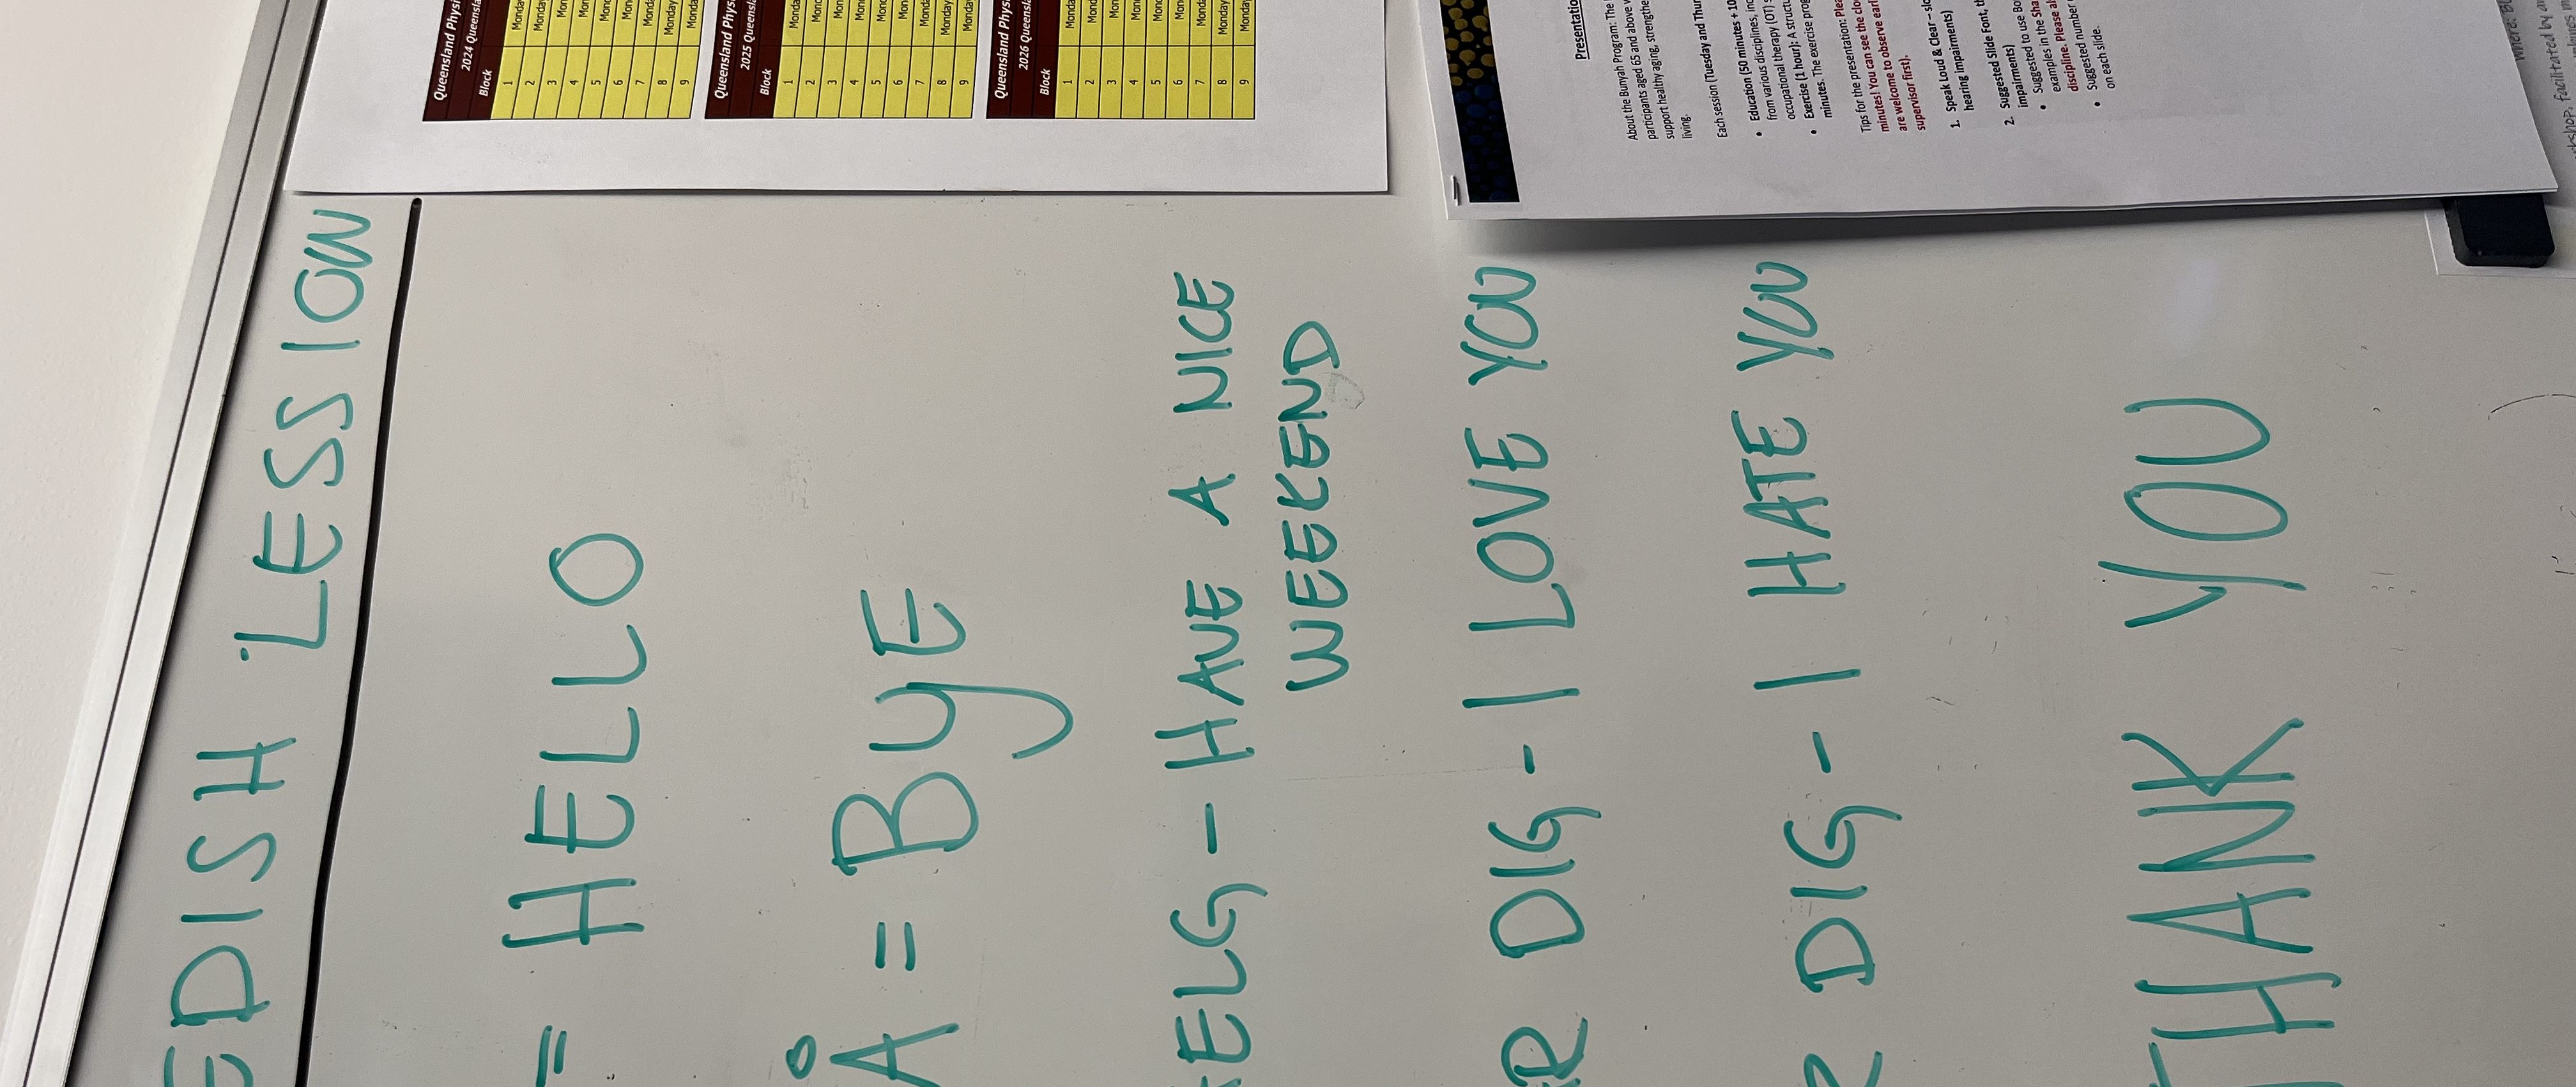 EDISH LESSION
= HELLO
Å = BYE
ELG - HAVE A NICE
WEEKEND
R DIG - I LOVE YOU
R DIG - I HATE YOU
THANK YOU
Queensland Physi
2024 Queensla
Block
1 Monda
2 Monda
3 Mon
4 Mon
5 Mon
6 Mon
7 Mond
8 Monday
9 Monda
Queensland Phys
2025 Queensla
Block
1 Monda
2 Mond
3 Mon
4 Mon
5 Mon
6 Mon
7 Mond
8 Monday
9 Monda
Queensland Physi
2026 Queensla
Block
1 Monda
2 Mond
3 Mon
4 Mon
5 Mond
6 Mon
7 Monda
8 Monday
9 Monday
Presentatio
About the Bunyah Program: The
participants aged 65 and above
support healthy aging, strengthe
living.
Each session (Tuesday and Thur
• Education (50 minutes + 10
from various disciplines, in
occupational therapy (OT)
• Exercise (1 hour): A struct
minutes. The exercise prog
Tips for the presentation: Plea
minutes! You can see the clo
are welcome to observe earl
supervisor first).
1. Speak Loud & Clear – slo
hearing impairments)
2. Suggested Slide Font, th
impairments)
• Suggested to use Bo
examples in the Sha
discipline. Please al
• Suggested number
on each slide.
Where: Bu
shop, facilitated by a